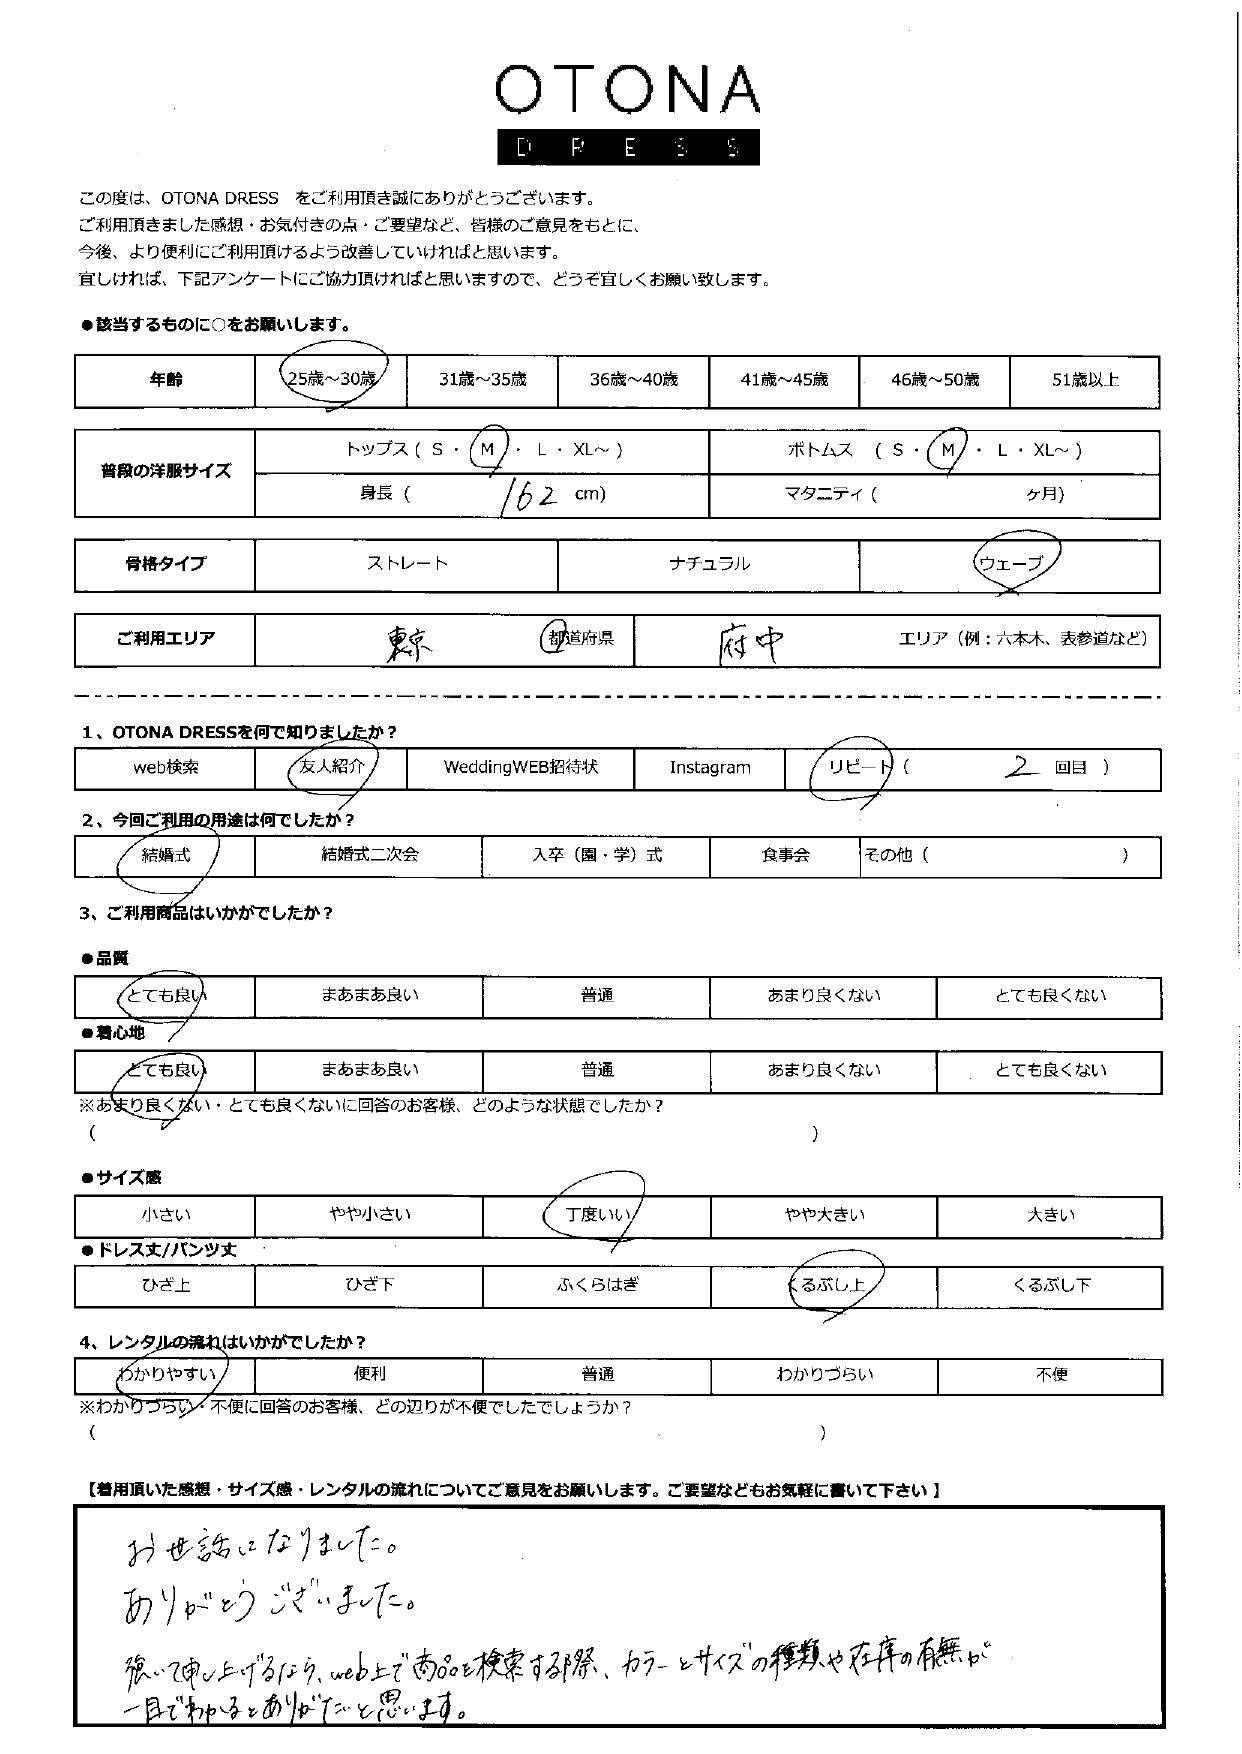 OTONA
DRESS
この度は、OTONA DRESS をご利用頂き誠にありがとうございます。
ご利用頂きました感想・お気付きの点・ご要望など、皆様のご意見をもとに、
今後、より便利にご利用頂けるよう改善していければと思います。
宜しければ、下記アンケートにご協力頂ければと思いますので、どうぞ宜しくお願い致します。
●該当するものに○をお願いします。
年齢 25歳～30歳 31歳～35歳 36歳～40歳 41歳～45歳 46歳～50歳 51歳以上
普段の洋服サイズ トップス ( S ・ M ・ L ・ XL～ ) ボトムス ( S ・ M ・ L ・ XL～ )
身長 ( 162 cm) マタニティ ( ヶ月)
骨格タイプ ストレート ナチュラル ウェーブ
ご利用エリア 東京 都道府県 府中 エリア（例：六本木、表参道など）
1、OTONA DRESSを何で知りましたか？
web検索 友人紹介 WeddingWEB招待状 Instagram リピート ( 2 回目 )
2、今回ご利用の用途は何でしたか？
結婚式 結婚式二次会 入卒（園・学）式 食事会 その他 ( )
3、ご利用商品はいかがでしたか？
●品質
とても良い まあまあ良い 普通 あまり良くない とても良くない
●着心地
とても良い まあまあ良い 普通 あまり良くない とても良くない
※あまり良くない・とても良くないに回答のお客様、どのような状態でしたか？
( )
●サイズ感
小さい やや小さい 丁度いい やや大きい 大きい
●ドレス丈/パンツ丈
ひざ上 ひざ下 ふくらはぎ くるぶし上 くるぶし下
4、レンタルの流れはいかがでしたか？
わかりやすい 便利 普通 わかりづらい 不便
※わかりづらい・不便に回答のお客様、どの辺りが不便でしたでしょうか？
( )
【着用頂いた感想・サイズ感・レンタルの流れについてご意見をお願いします。ご要望などもお気軽に書いて下さい 】
お世話になりました。
ありがとうございました。
強いて申し上げるなら、web上で商品を検索する際、カラーとサイズの種類や在庫の有無が
一目でわかるとありがたいと思います。